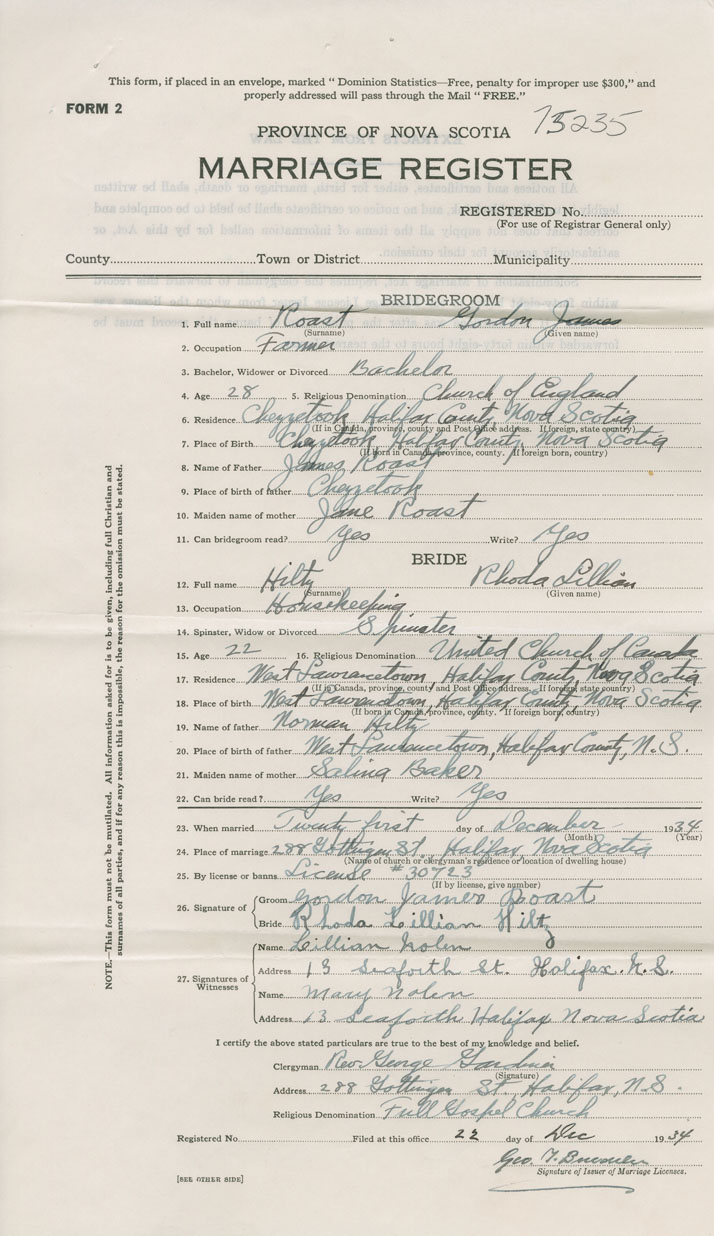 This form, if placed in an envelope, marked " Dominion Statistics—Free, penalty for improper use $300," and
properly addressed will pass through the Mail " FREE."
FORM 2
15235
PROVINCE OF NOVA SCOTIA
MARRIAGE REGISTER
REGISTERED No.
(For use of Registrar General only)
County Town or District Municipality
BRIDEGROOM
1. Full name Roast Gordon James
(Surname) (Given name)
2. Occupation Farmer
3. Bachelor, Widower or Divorced Bachelor
4. Age 28 5. Religious Denomination Church of England
6. Residence Chezzetcook, Halifax County, Nova Scotia
(If in Canada, province, county and Post Office address. If foreign, state country)
7. Place of Birth Chezzetcook, Halifax County, Nova Scotia
(If born in Canada, province, county. If foreign born, country)
8. Name of Father James Roast
9. Place of birth of father Chezzetcook
10. Maiden name of mother Jane Roast
11. Can bridegroom read? Yes Write? Yes
BRIDE
12. Full name Hiltz Rhoda Lillian
(Surname) (Given name)
13. Occupation Housekeeping
14. Spinster, Widow or Divorced Spinster
15. Age 22 16. Religious Denomination United Church of Canada
17. Residence West Lawrencetown, Halifax County, Nova Scotia
(If in Canada, province, county and Post Office address. If foreign state country)
18. Place of birth West Lawrencetown, Halifax County, Nova Scotia
(If born in Canada, province, county. If foreign born, country)
19. Name of father Norman Hiltz
20. Place of birth of father West Lawrencetown, Halifax County, N.S.
21. Maiden name of mother Salina Baker
22. Can bride read? Yes Write? Yes
23. When married Twenty first day of December 1934
(Month) (Year)
24. Place of marriage 288 Gottingen St. Halifax, Nova Scotia
(Name of church or clergyman's residence or location of dwelling house)
25. By license or banns License #30723
(If by license, give number)
26. Signature of Groom Gordon James Roast
Bride Rhoda Lillian Hiltz
27. Signatures of Witnesses
Name Lillian Nolen
Address 13 Seaforth St. Halifax. N.S.
Name Mary Nolen
Address 13 Seaforth Halifax Nova Scotia
I certify the above stated particulars are true to the best of my knowledge and belief.
Clergyman Rev George Gardiner
(Signature)
Address 288 Gottingen St, Halifax, N.S.
Religious Denomination Full Gospel Church
Registered No. Filed at this office 22 day of Dec 1934
Geo. F.
Signature of Issuer of Marriage Licenses.
[SEE OTHER SIDE]
NOTE.—This form must not be mutilated. All information asked for is to be given, including full Christian and
surnames of all parties, and if for any reason this is impossible, the reason for the omission must be stated.